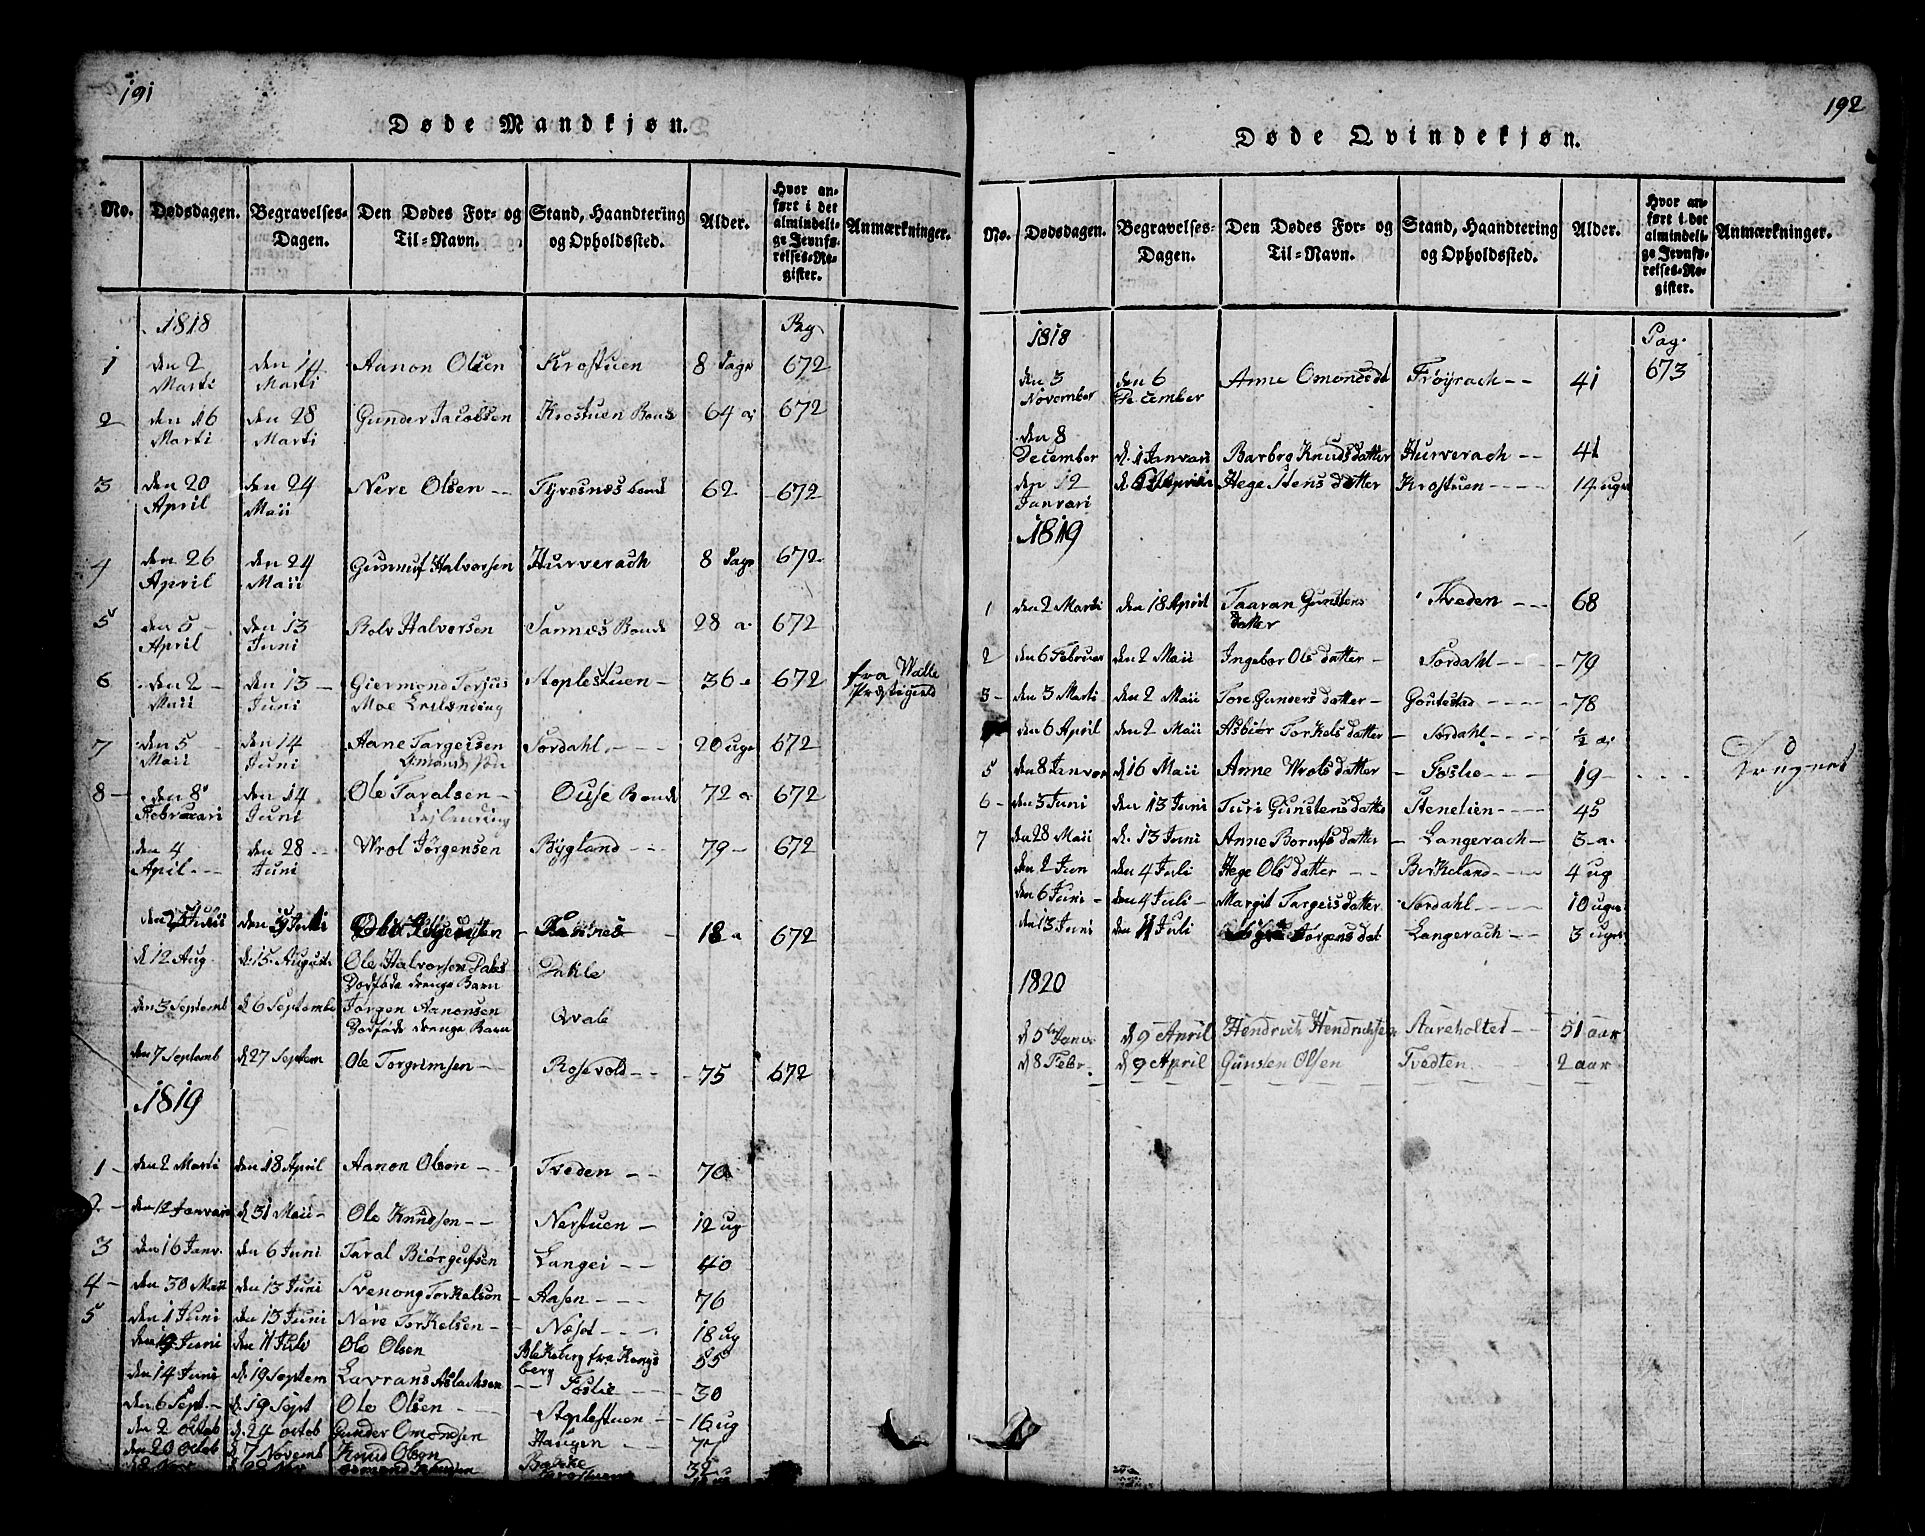 191
Døde Mandkjøn.
No. Dødsdagen. Begravelses-Dagen. Den Dødes For- og Til-Navn. Stand, Haandtering og Opholdssted. Alder. Hvor anført i det almindelige Jevnførelses-Register. Anmærkninger.
1818 Pag
1 den 2 Marti den 14 Marti Aanon Olsen Krostuen 8 Dage 672
2 den 16 Marti den 28 Marti Gunder Jacobsen Krostuen Bonde 64 a 672
3 den 20 April den 24 Maii Nere Olsen Tyvesnæs bonde 62 672
4 den 26 April den 24 Maii Gunnuf Halvorsen Hurverach 8 Dage 672
5 den 5 April den 13 Juni Rolv Halvorsen Sannæs Bonde 28 a 672
6 den 2 Maii den 13 Juni Giermond Torjus Stoplestuen 36 672 fra Walle
7 den 5 Maii den 14 Juni Aane Targeisen Sordahl 20 uge 672
8 den 8 Februari den 14 Juni Ole Taralsen Ouse Bonde 72 a 672
den 4 April den 28 Juni Wrol Jørgensen Bygland 79 672
18 a 672
d 12 Aug. d. 15 Augusti Ole Halvorsen
Dødføde drenge Barn
den 3 Septemb d 6 Septembe Jørgen Aanonsen Qvale
Dødføde drenge Barn
den 7 Septemb d 27 Septem Ole Torgrimsen Rosevold 75 672
1819
1 den 2 Marti den 18 April Aanon Olsen Tveden 70
2 den 12 Janvari d 31 Maii Ole Knudsen Nerstuen 12 ug
3 den 16 Janv. den 6 Juni Taral Biørgufsen Langei 40
4 den 30 Maii den 13 Juni Svenong Torkelson Aasen 76
5 den 1 Juni den 13 Juni Nere Torkelsen Næset 18 ug
den 19 Juni den 11 Jule Ole Olsen Blekeberg fra Kongsberg 55
den 14 Juni d. 19 Septem Lavrans Aslachsen Foslie 30
den 6 Sept. d. 19 Sept Ole Olsen Stoplestuen 16 ug
den 2 octob d. 24 octob Gunder Omondsen Haugen 77
den 20 octob d. 7 Novemb Knud Olson 32
192
Døde Qvindekjøn.
No. Dødsdagen. Begravelses-Dagen. Den Dødes For- og Til-Navn. Stand, Haandtering og Opholdssted. Alder. Hvor anført i det almindelige Jevnførelses-Register. Anmærkninger.
1818 Pag.
den 3 November den 6 December Anne Omonsdt Frøyrach 41 673
den 8 December d. 1 Janvari Barbro Knudsdatter Hurverach 41
den 12 Janvari Hege Stens datter Krostuen 14 uger
1819
1 den 2 Marti den 18 April Taaran Gunstens datter Tveden 68
2 den 6 Februar den 2 Maii Ingebor Ols datter Sordahl 79
3 den 3 Marti den 2 Maii Tore Gunders datter 78
den 6 April den 2 Maii Asbiør Torkels datter Sordahl ½ a
5 den 8 Janvar d 16 Maii Anne Wrols datter Foslie 19
6 den 3 Juni den 13 Juni Turi Gunstens datter Stenelien 45
7 den 28 Maii d. 13 Juni Anne datter Langerach 3 a.
den 2 Jun den 4 Juli Hege Ols datter Birkeland 4 ug
den 6 Juni den 4 Juli Margit Targeis datter Sordahl 10 uger
den 13 Juni den 11 Juli Jørgens dat Langerach 3 uger
1820
d 5 Janv. d 9 April Hendrich Hendrichsen Aareholtet 51 aar
d 8 Febr. d 9 April Gunsten Olsen Tvedten 2 aar